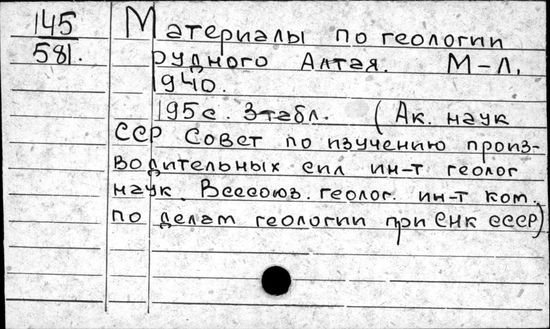 145
581.
Материалы по геологии
рудного Алтая. М-Л,
1940.
195с. 3табл. (Ак. наук
СССР Совет по изучению произ-
водительных сил ин-т геолог
наук. Всесоюз. геолог. ин-т ком.
по делам геологии при СНК СССР)